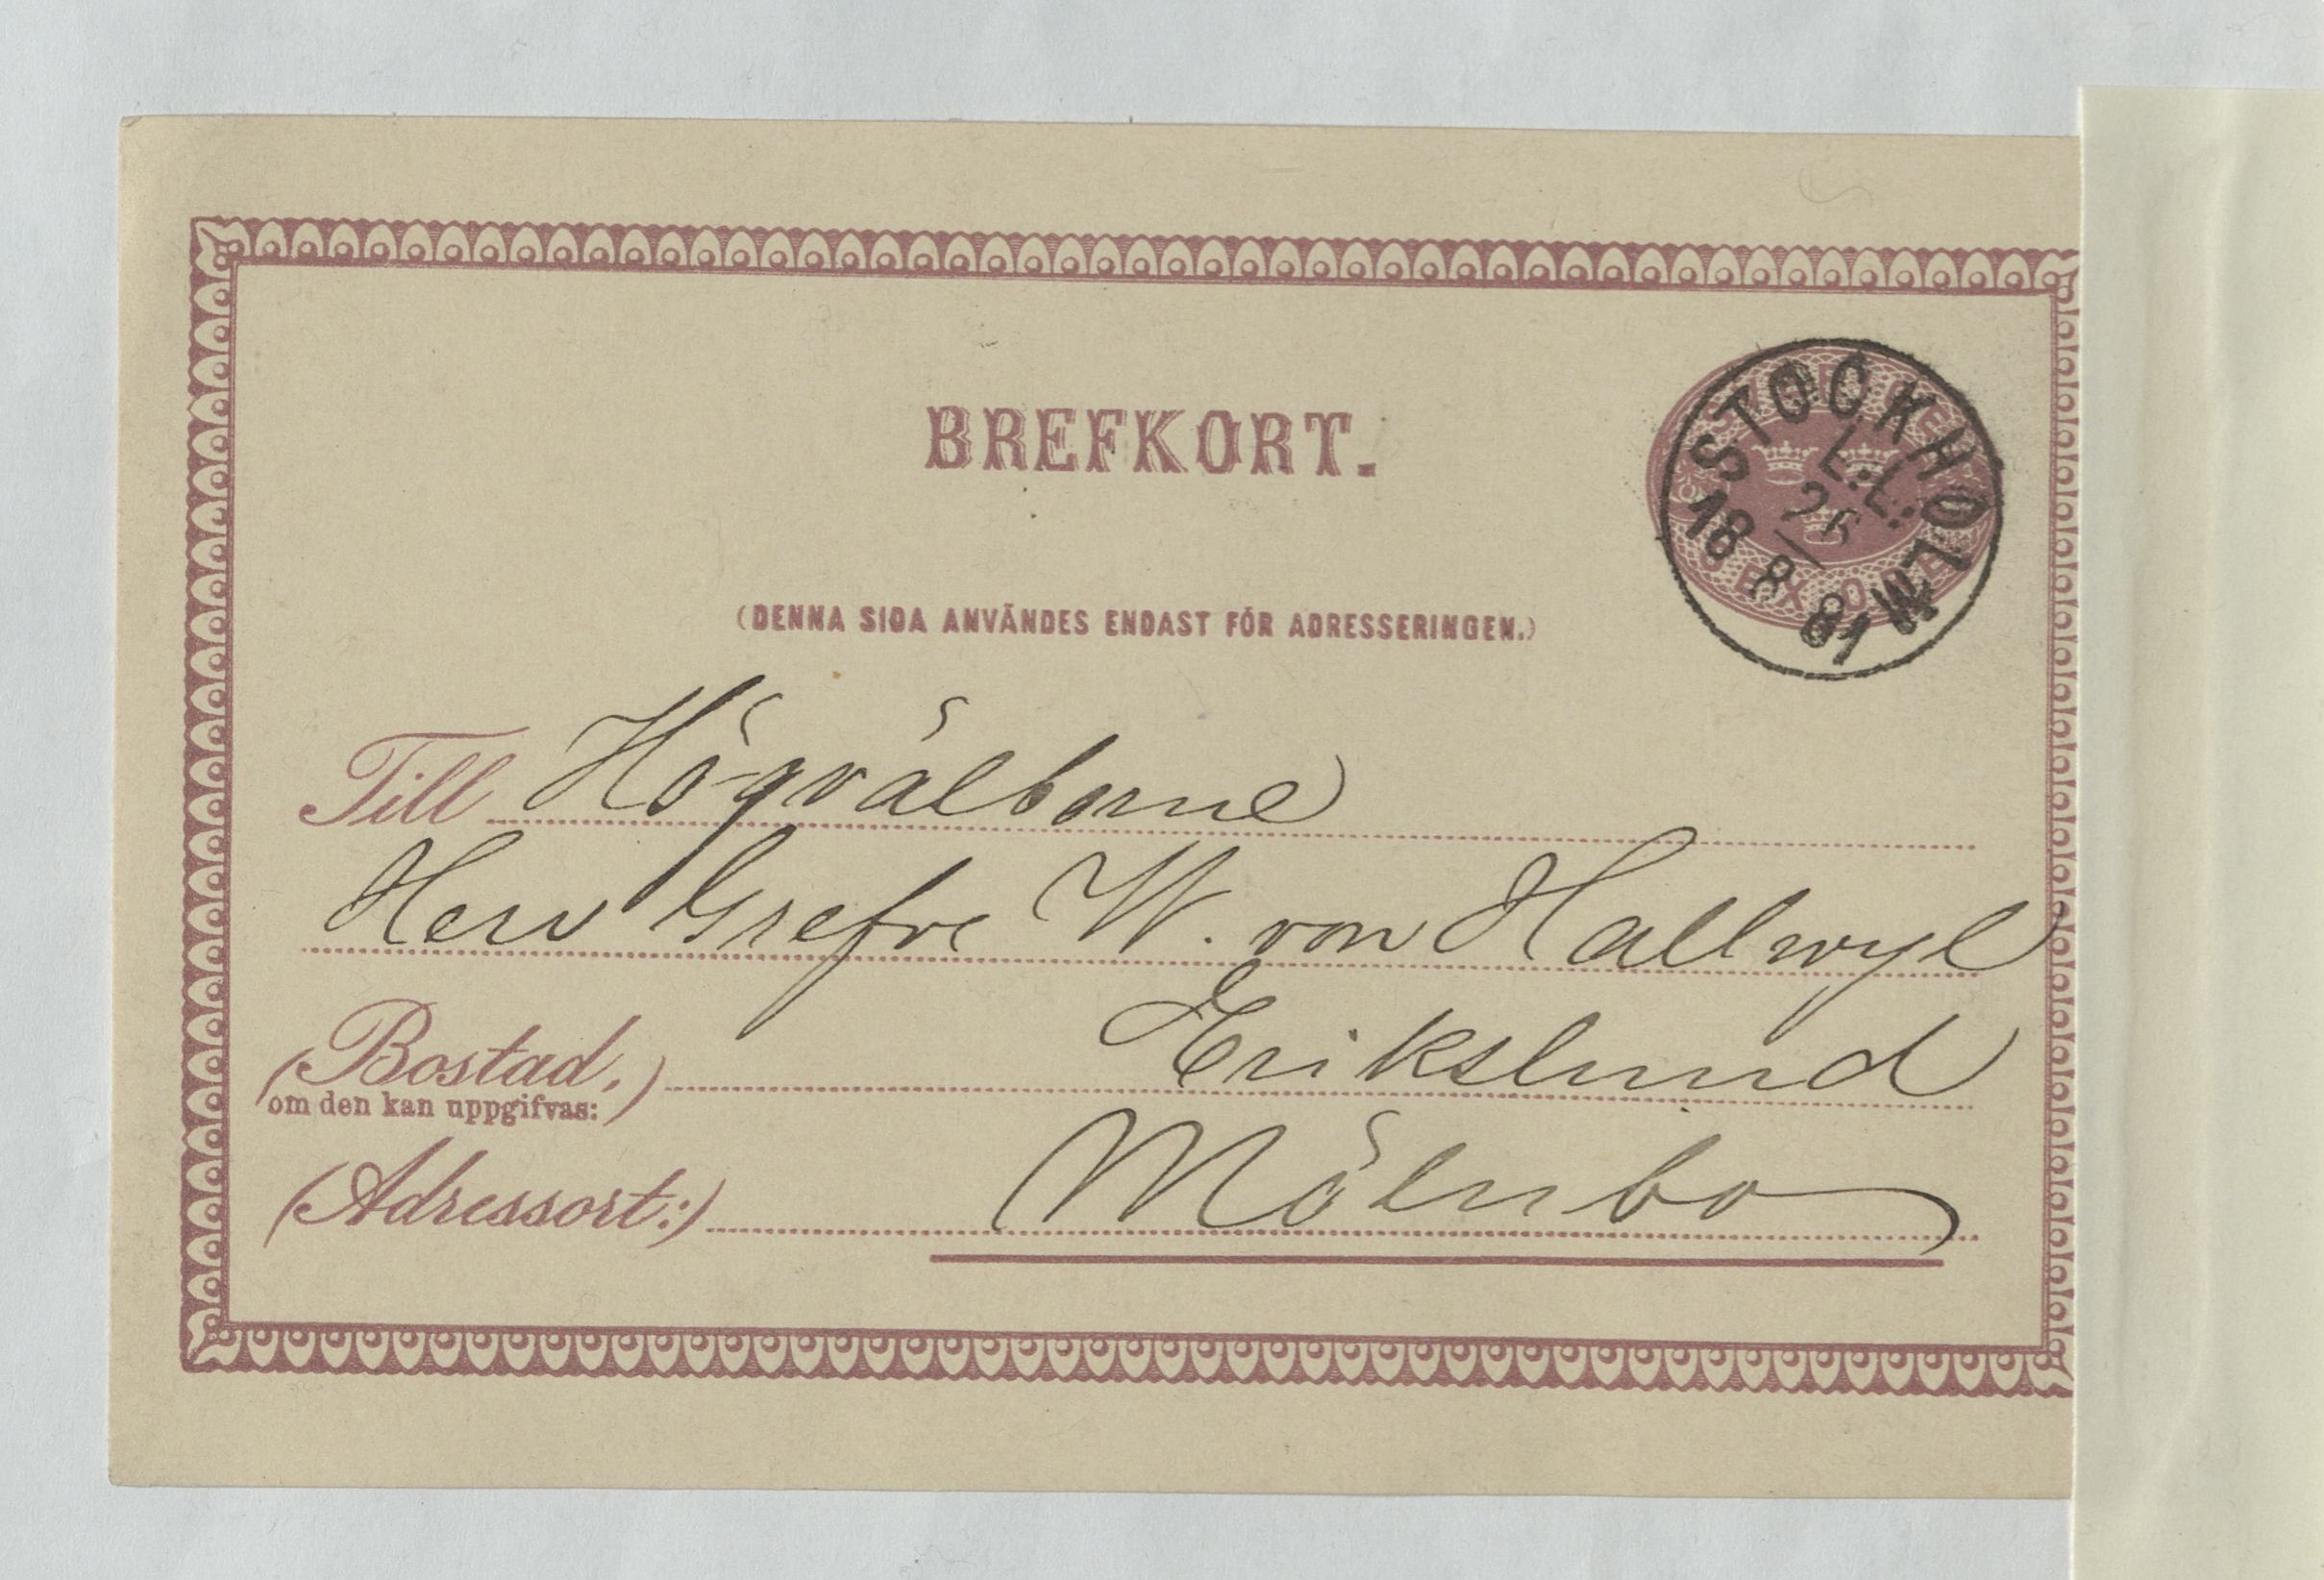 BREFKORT.
STOCKHOLM
L.L.
25
8
18 81
(DENNA SIDA ANVÄNDES ENDAST FÖR ADRESSERINGEN.)
Till Högvälborne
Herr Grefve W. von Hallwyl
(Bostad,) Erikslund
om den kan uppgifvas:
(Adressort:) Mölnbo